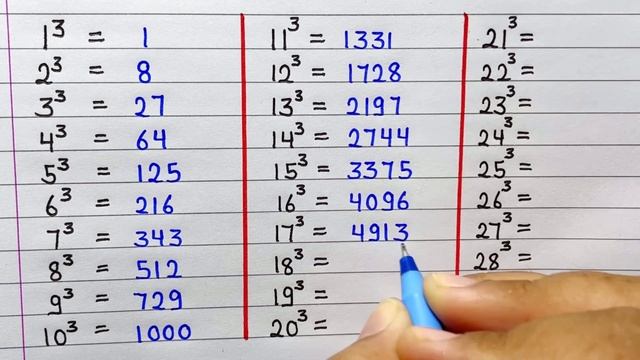 1³ = 1
2³ = 8
3³ = 27
4³ = 64
5³ = 125
6³ = 216
7³ = 343
8³ = 512
9³ = 729
10³ = 1000
11³ = 1331
12³ = 1728
13³ = 2197
14³ = 2744
15³ = 3375
16³ = 4096
17³ = 4913
18³ =
19³ =
20³ =
21³ =
22³ =
23³ =
24³ =
25³ =
26³ =
27³ =
28³ =